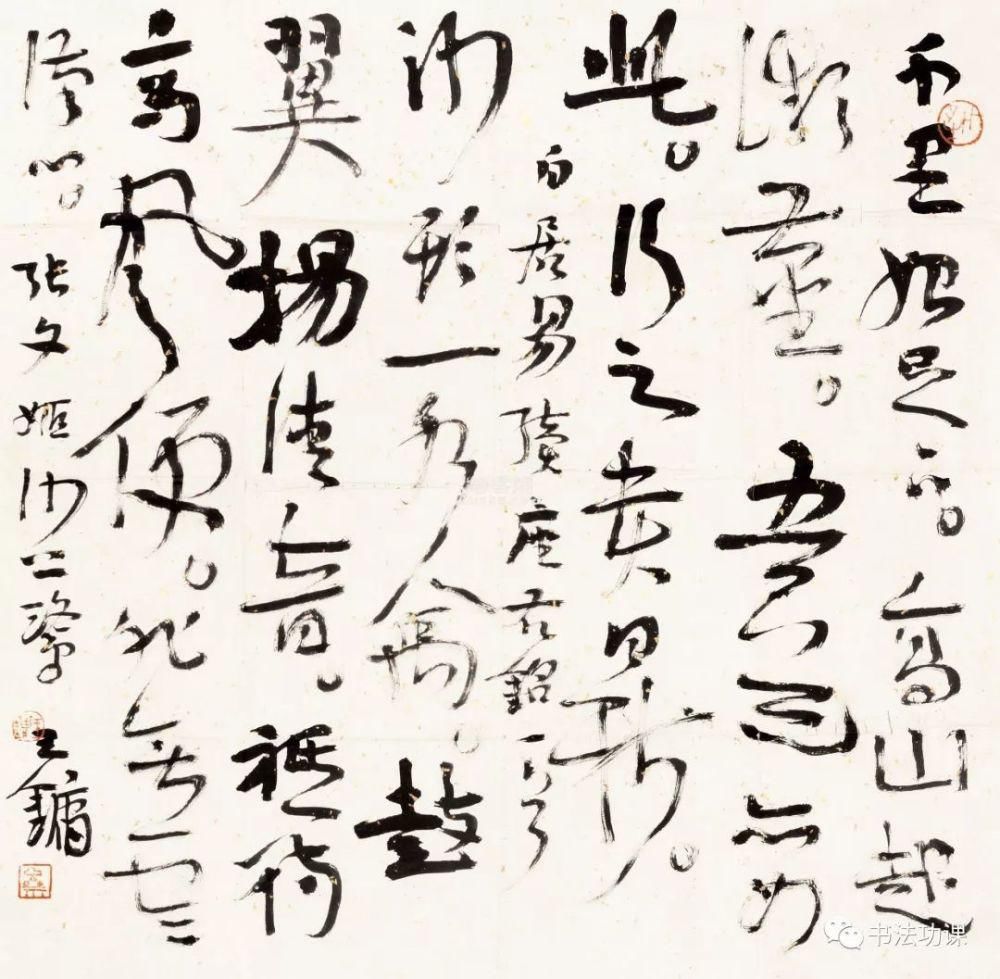 千里始足下。高山起
微塵。吾道亦如
此。行之貴日新。
白居易續座右銘
沙頭一水禽。鼓
翼揚清音。祗待
高風便。非無雲
漢心。張文姬沙上鷺 王鏞
书法功课